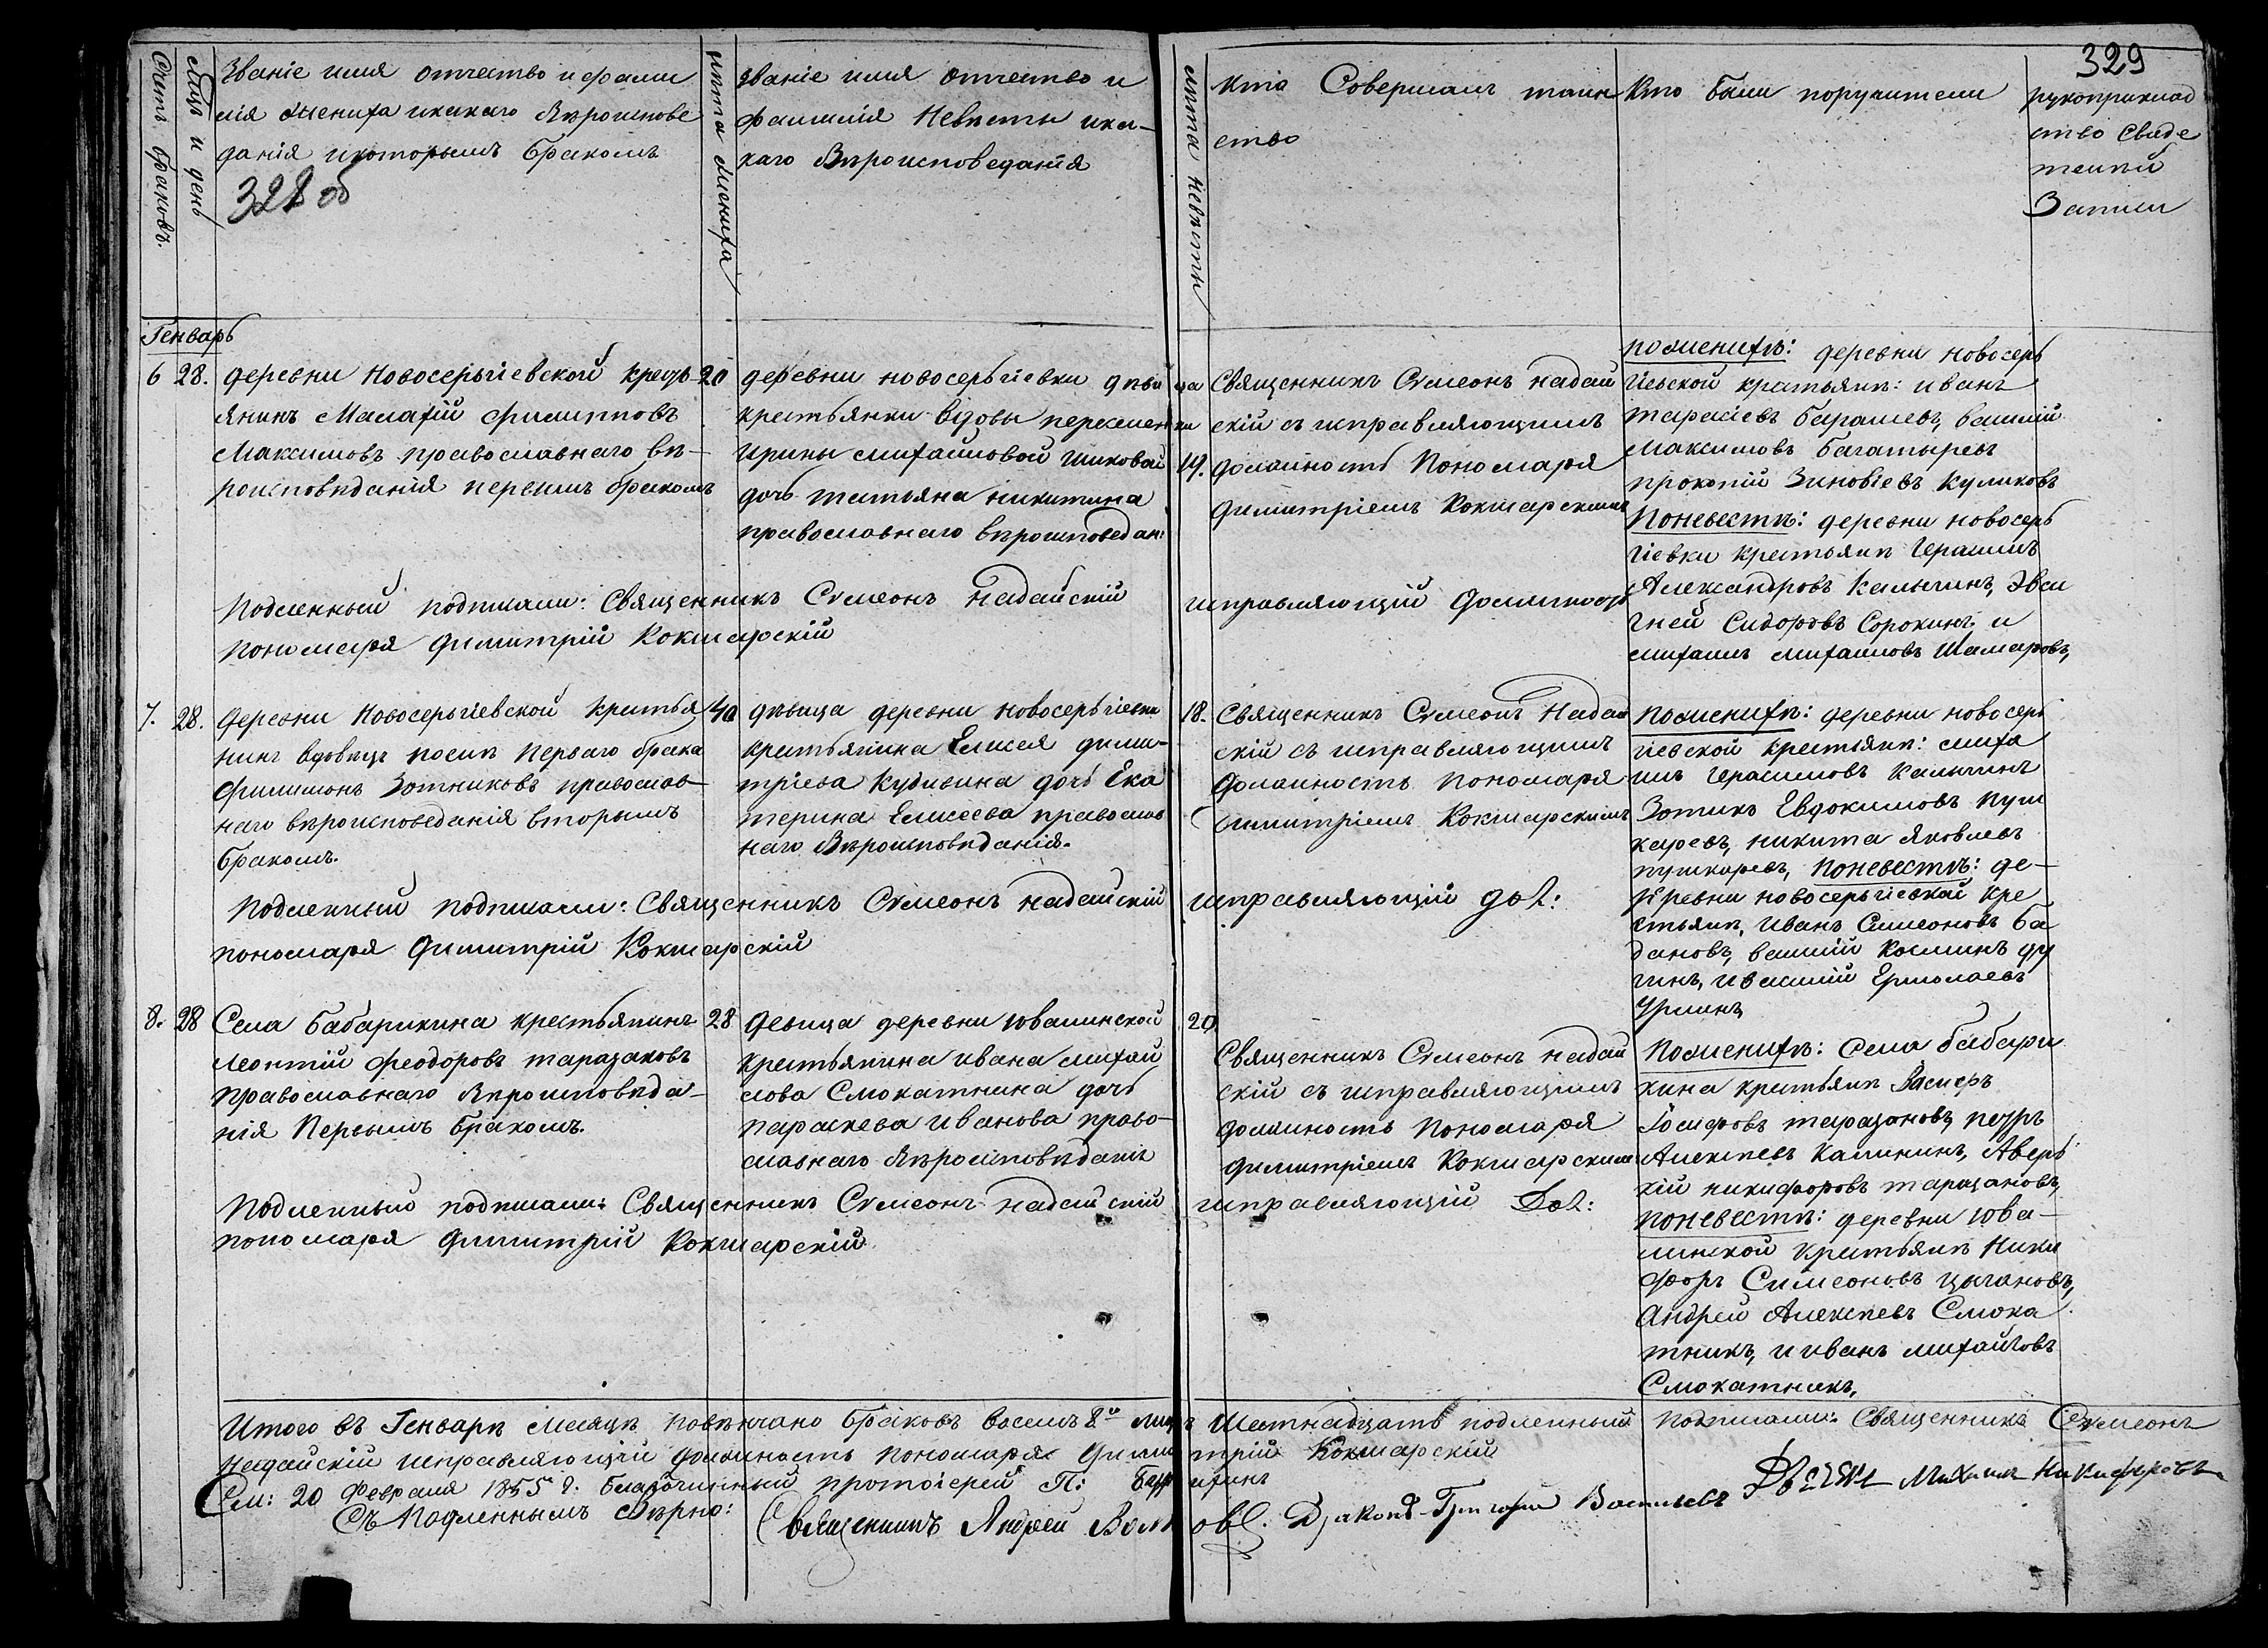 329
Счетъ браковъ.
Мцъ и день
Званіе имя отчество и фами
лія жениха икакаго Вѣроиспове
данія икоторымъ бракомъ
328 об
лѣта жениха
Званіе имя отчество и
фамилія Невѣсты ика-
каго Вѣроисповеданія
лѣта невѣсты
Кто Совершалъ таин
ство
Кто были поручители
рукоприклад
ство Свиде
телей
Записи
Генварь
6 28. деревни Новосергіевской кресть
янинъ Малахій Филипповъ
Максимовъ православнаго вѣ-
роисповѣданія первымъ бракомъ
20
деревни новосергіевки дѣвица
крестьянки вдовы
Ирины Михайловой Шиковой
дочь Татьяна Никитина
православнаго вѣроисповедан:
19.
Священникъ Сѵмеонъ Надай
скій съ исправляющимъ
должность Пономаря
Димитріемъ Кокшарскимъ
поженихѣ: деревни новосерь
гіевской крестьяне: Иванъ
Барашевъ, Василій
Максимовъ Багатыревъ
Прокопій Зиновіевъ Куликовъ
Поневестѣ: деревни новосерь
гіевки крестьяне Герасимъ
Александровъ Калычинъ, Евси
гней Сидоровъ Сорокинъ и
Михаилъ Михаиловъ Шамаровъ,
Подленный подписали: Священникъ Сѵмеонъ Надайскій исправляющій должность
пономаря Димитрій Кокшарскій
7. 28. Деревни Новосергіевской крестья
нинъ вдовецъ послѣ перваго брака
Филимонъ Зотниковъ православ-
наго вѣроисповеданія вторымъ
бракомъ.
40
дѣвица деревни новосергіевки
крестьянина Елисея Дими-
тріева Кудивина дочь Ека
терина Елисеева православ
наго Вѣроисповѣданія.
18.
Священникъ Сѵмеонъ Надай
скій съ исправляющимъ
должность пономаря
Димитріемъ Кокшарскимъ
поженихѣ: деревни новосерь
гіевской крестьяне: Миха
илъ Герасимовъ Калычинъ
Зотикъ Евдокимовъ Пуш
каревъ, Никита Яковлевъ
пушкаревъ, поневестѣ: де-
ревни новосергіевской кре
стьяне, Иванъ Симеоновъ Ба
дановъ, Василій Косминъ
и Василій Ермолаевъ
Подленный подписали: Священникъ Сѵмеонъ Надайскій исправляющій дол:
пономаря Димитрій Кокшарскій
8. 28 Села Бабарикина крестьянинъ
Леонтій Феодоровъ Таразановъ
православнаго Вѣроисповѣда-
нія Первымъ бракомъ.
28
Девица деревни Ювалинской
крестьянина Ивана Михай
лова Смокатнина дочь
Параскева Иванова право-
славнаго Вѣроисповѣданія
20
Священникъ Сѵмеонъ Надай
скій съ исправляющимъ
должность Пономаря
Димитріемъ Кокшарскимъ
Поженихѣ: Села Бабари
кина крестьяне
Іосифовъ Таразановъ, Петръ
Алексѣевъ Калининъ, Аверь
кій Никифоровъ Таразановъ,
поневестѣ: деревни Юва-
линской крестьяне Ники
форъ Симеоновъ Цыгановъ,
Андрей Алексѣевъ Смока
тникъ, и Иванъ Михайловъ
Смокатникъ,
Подленный подписали: Священникъ Сѵмеонъ Надайскій исправляющій Дол:
пономаря Димитрій Кокшарскій
Итого въ Генварѣ месяцѣ повѣнчано браковъ восемь 8ⁿ лицъ Шестнадцать подленный подписали: Священникъ Сѵмеонъ
Надайскій исправляющій должность пономаря Димитрій Кокшарскій
См: 20 Февраля 1855 г. Благочинный протоіерей П:
Съ Подленнымъ Вѣрно: Священникъ Андрей Діаконъ Григорій Васильевъ Дьячекъ Михаилъ Никифоровъ